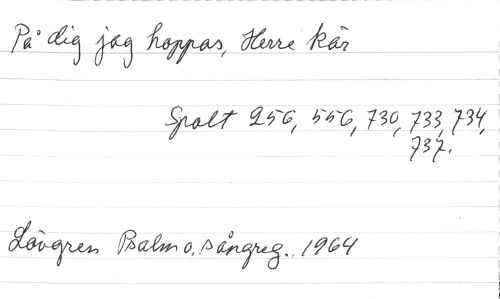 På dig jag hoppas, Herre kär
Spalt 256, 556, 730, 733, 734,
737.
Lövgren Psalm o. sångreg. 1964